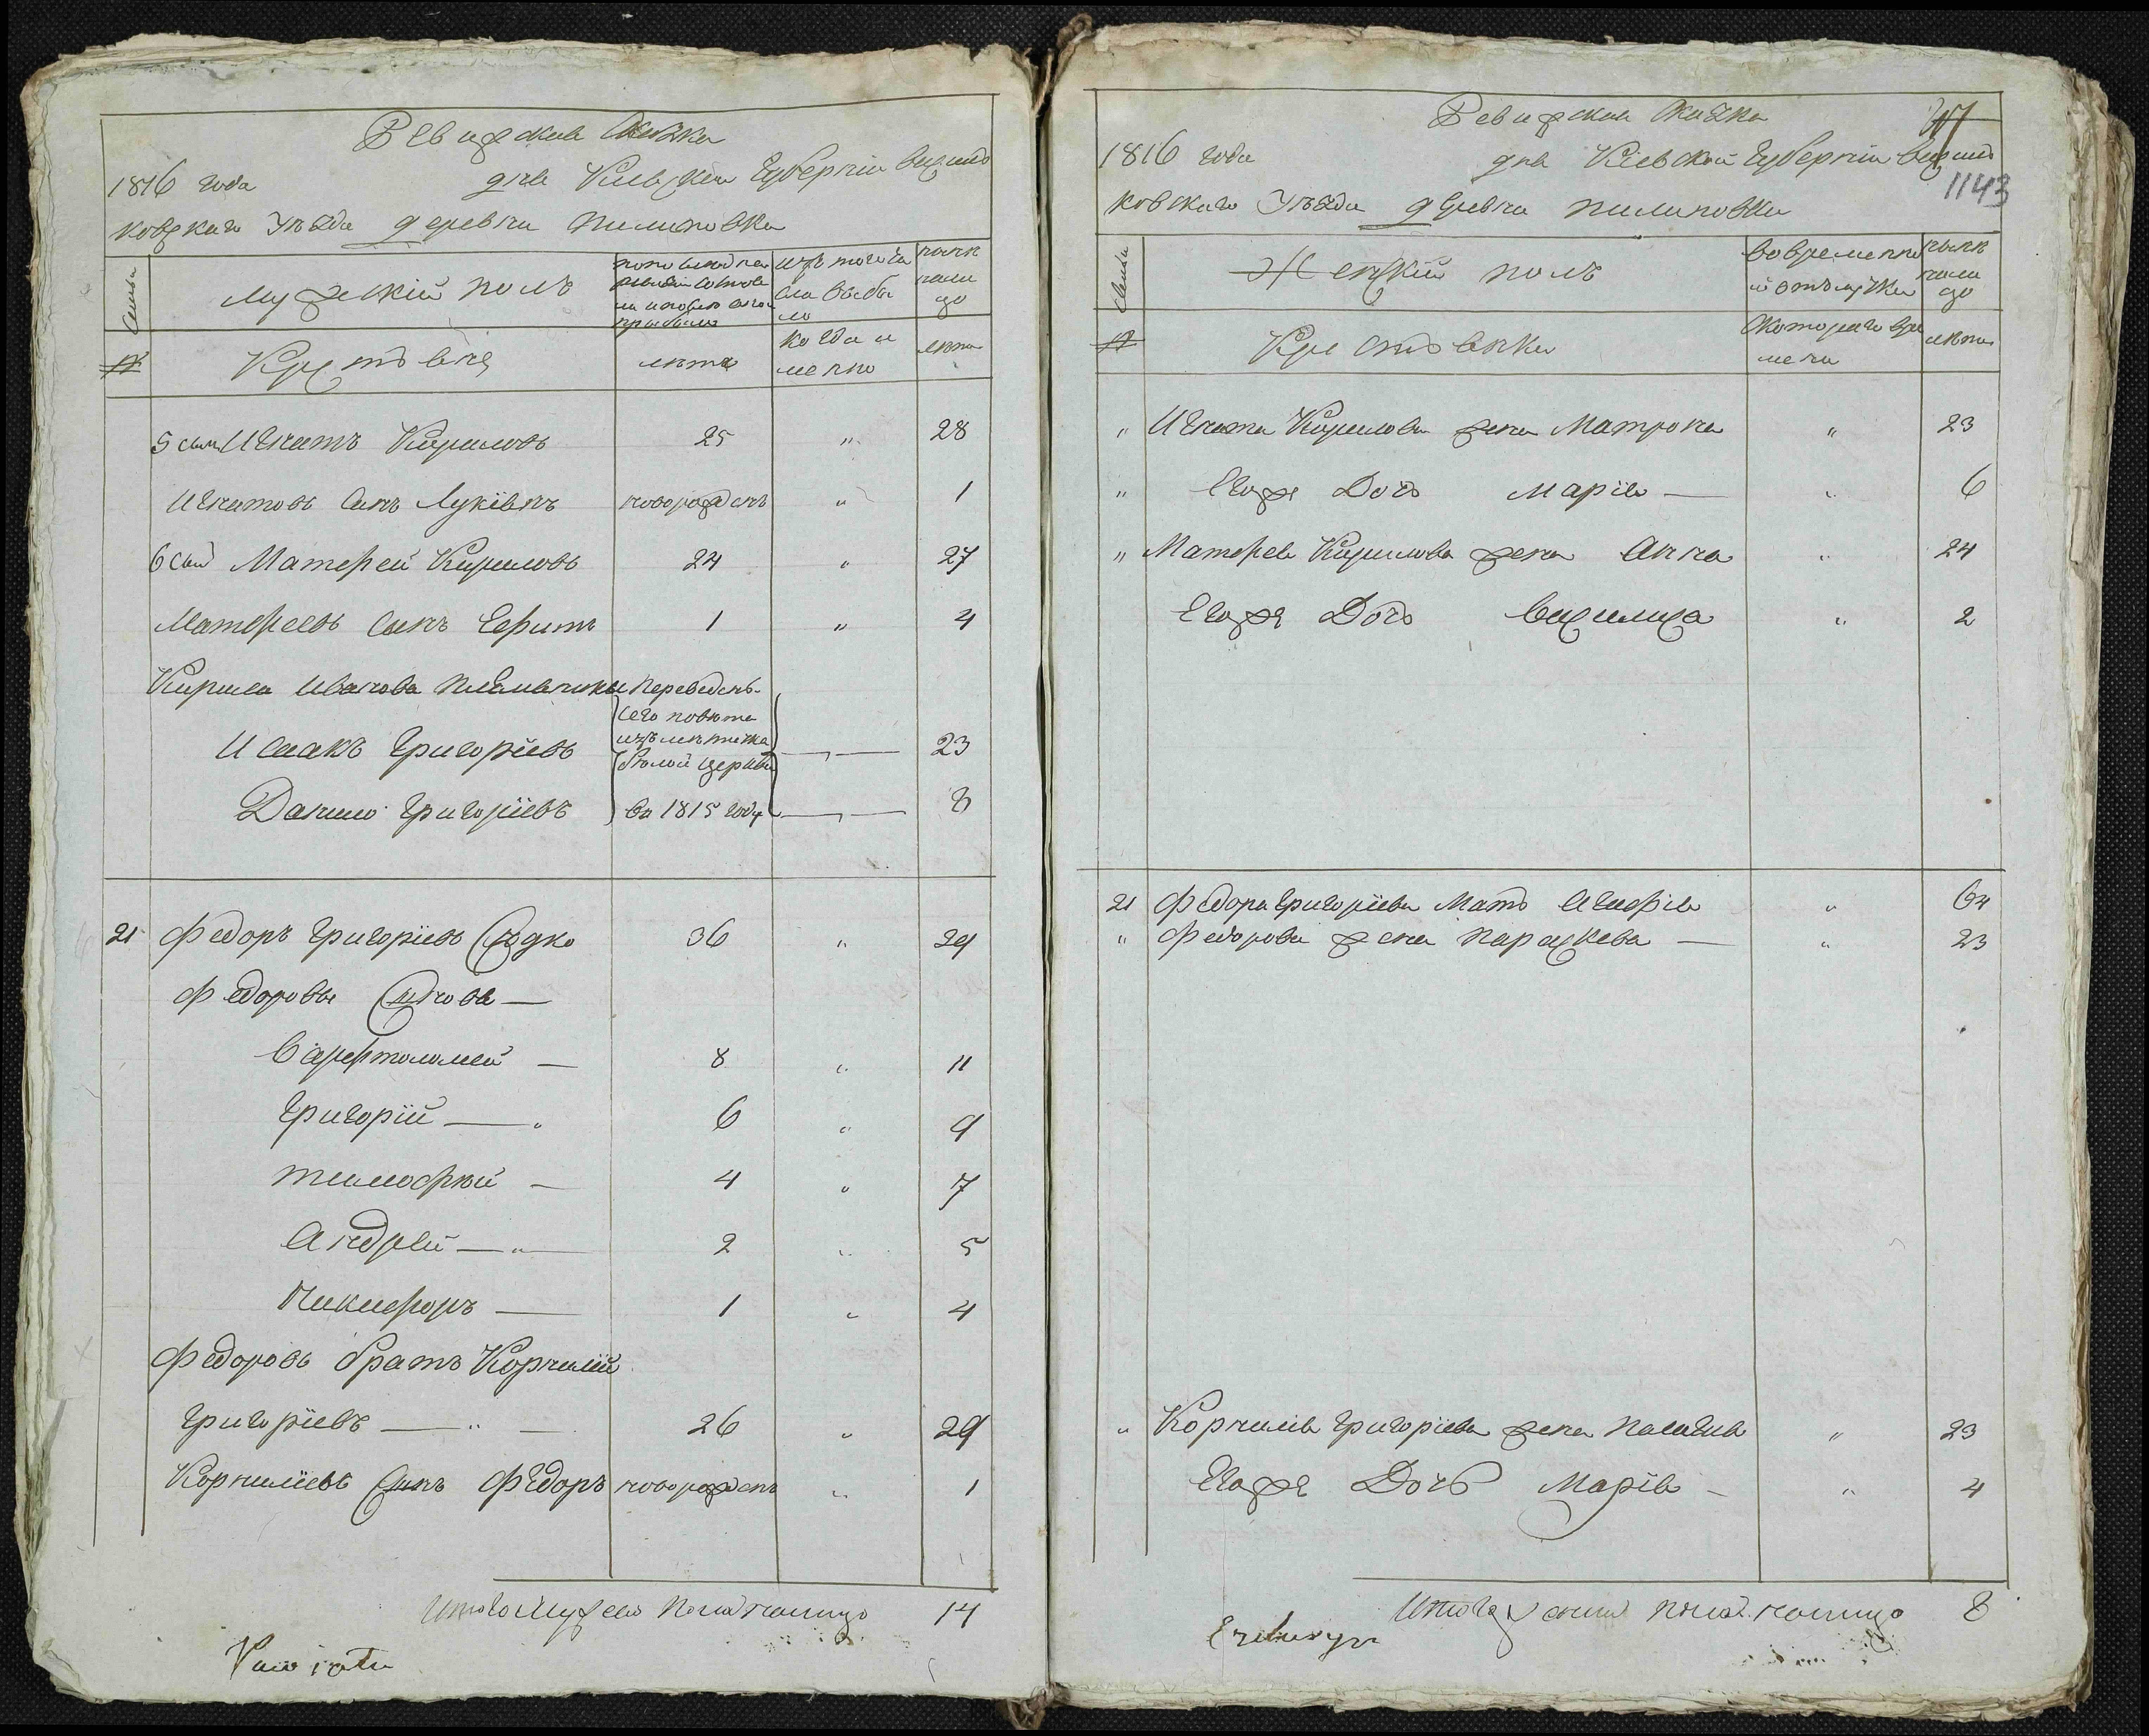 Ревизская Сказка
1816 года дня Киевской Губернии Василь
ковского Уезда деревни Пилиповки
Семьи Мужеский полъ по последней ревизии состояло и после оной прибыло изъ того числа выбыло ныне налицо
№ Крестьяне лета когда именно лета
5 сынъ Игнатъ Кириловъ 25 " 28
Игнатовъ Сынъ Лукіянъ новорожденъ " 1
6 сын Матфей Кириловъ 24 " 27
Матфеевъ сынъ Ефимъ 1 " 4
Кирила Иванова племянники переведенъ
сего повета
изъ местечка
Исаакъ Григоріевъ белой церкви — 23
Данило Григоріевъ въ 1815 году — 8
21 Федоръ Григоріевъ 36 " 39
Федоровы Сынова —
Варфтоломей — 8 " 11
Григорій — 6 " 9
Тимофей — 4 " 7
Андрей — 2 " 5
Никифоръ — 1 " 4
Федоровъ братъ Корнилій
Григоріевъ — 26 " 29
Корниліевъ Сынъ Федоръ новорожденъ " 1
Итого Мужеска пола налицо 14
Ревизская Сказка
1816 года дня Кіевской Губерніи Василь
1143
ковскаго Уезда деревни Пилиповки
Семьи Женскій полъ во временной отлучке ныне налицо
№ Крестьянки Скотораго времени лета
" Игната Кирилова жена Матрона " 23
" Егоже Дочь Марія — " 6
" Матфея Кирилова жена Анна " 24
Егоже Дочь Василиса " 2
21 Федора Григоріева Мать Агафія " 64
" Федорова жена Параскева — " 23
" Корнилія Григоріева жена Пелагия " 23
Егоже Дочь Марія — " 4
Итого женска пола налицо 8